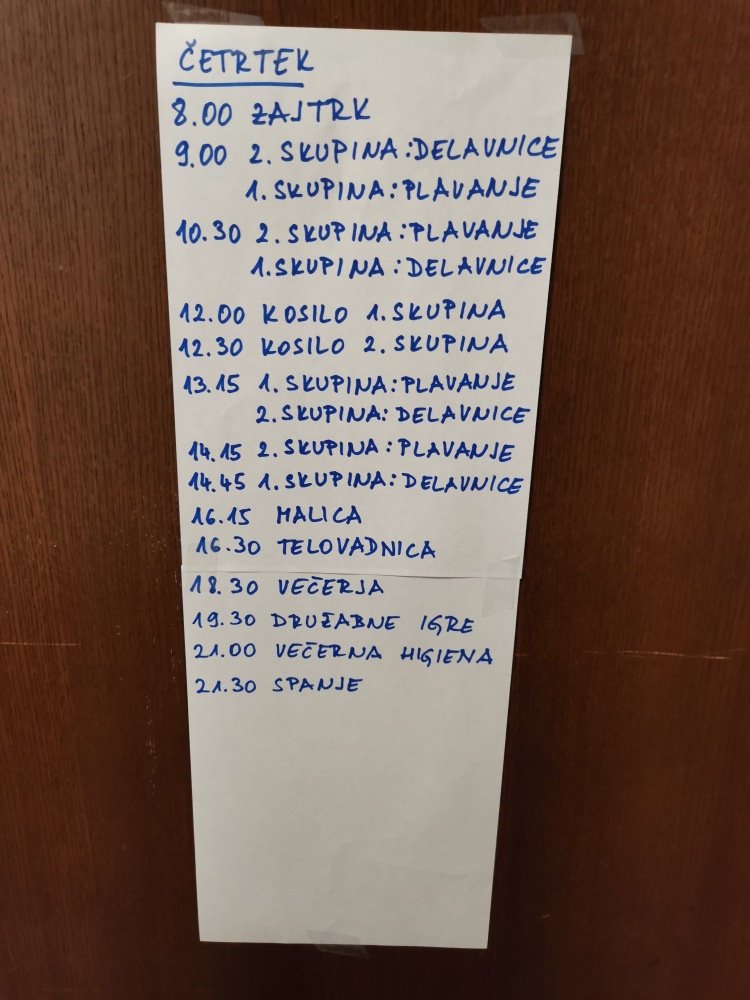 ČETRTEK
8.00 ZAJTRK
9.00 2. SKUPINA: DELAVNICE
1. SKUPINA: PLAVANJE
10.30 2. SKUPINA: PLAVANJE
1. SKUPINA: DELAVNICE
12.00 KOSILO 1. SKUPINA
12.30 KOSILO 2. SKUPINA
13.15 1. SKUPINA: PLAVANJE
2. SKUPINA: DELAVNICE
14.15 2. SKUPINA: PLAVANJE
14.45 1. SKUPINA: DELAVNICE
16.15 MALICA
16.30 TELOVADNICA
18.30 VEČERJA
19.30 DRUŽABNE IGRE
21.00 VEČERNA HIGIENA
21.30 SPANJE